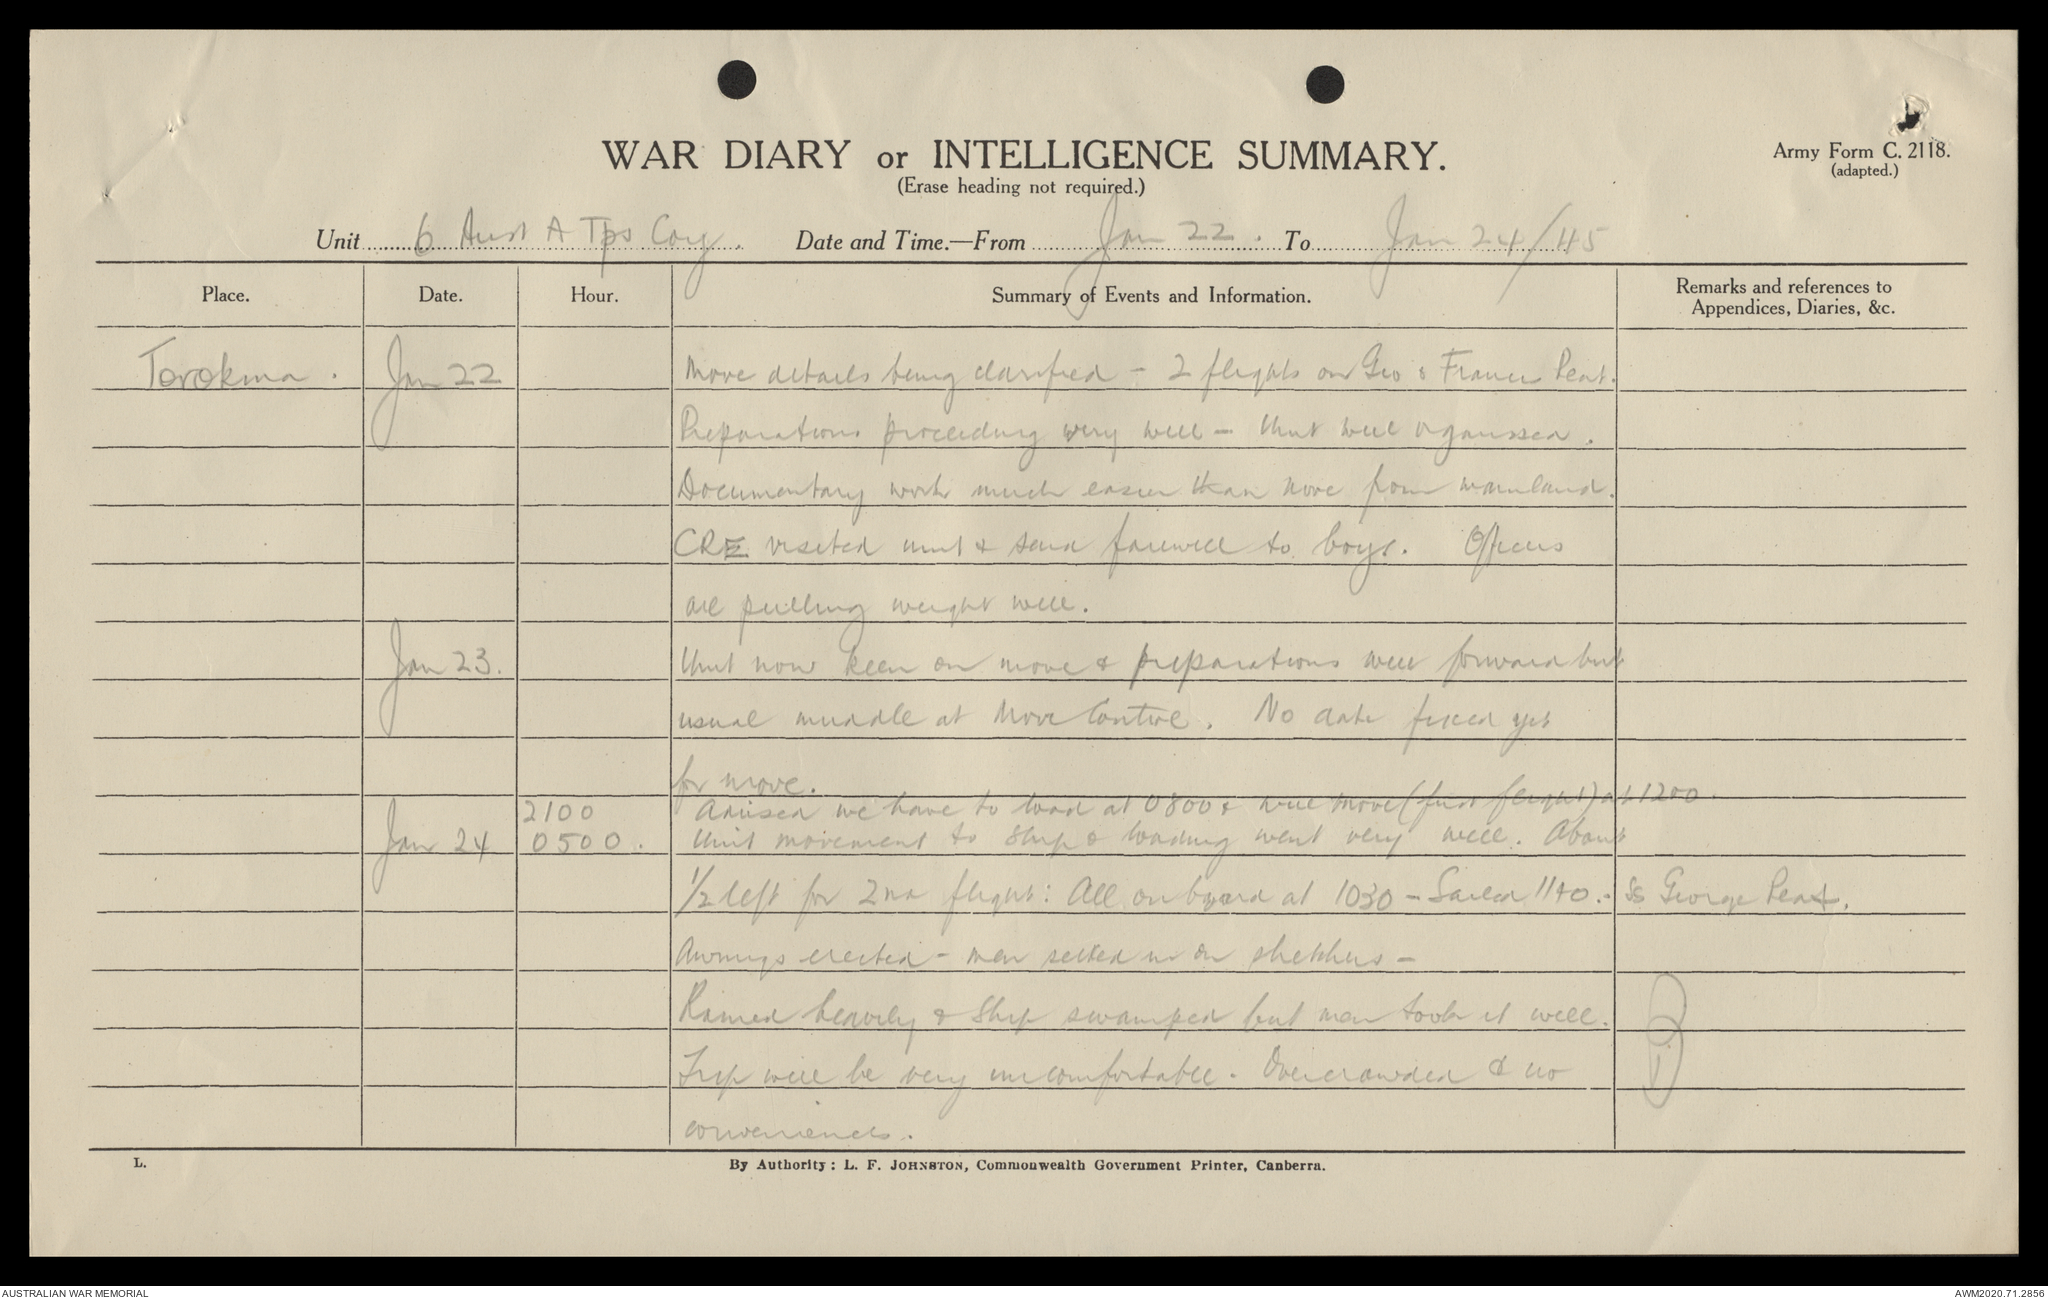 WAR DIARY or INTELLIGENCE SUMMARY.
(Erase heading not required.)
Army Form C. 2118.
(adapted.)
Unit 6 Aust A Tps Coy. Date and Time.—From Jan 22. To Jan 24/45
Place. Date. Hour. Summary of Events and Information. Remarks and references to Appendices, Diaries, &c.
Torokina. Jan 22 Move details being clarified - 2 flights on Geo & Francis Peat.
Preparations proceeding very well - Unit well organised.
Documentary work much easier than move from mainland.
CRE visited unit & said farewell to boys. Officers
all pulling weight well.
Jan 23. Unit now keen on move & preparations well forward but
usual muddle at Move Control. No date fixed yet
for move.
2100 Advised we have to load at 0800 & will move (first flight) at 1200.
Jan 24 0500. Unit movement to Ship & loading went very well. About
1/2 left for 2nd flight: All on board at 1030 - Sailed 1140. - SS George Peat.
Awnings erected - men settled in on stretchers -
Rained heavily & Ship swamped but men took it well.
Trip will be very uncomfortable. Overcrowded & no
conveniences.
L.
By Authority: L. F. JOHNSTON, Commonwealth Government Printer, Canberra.
AUSTRALIAN WAR MEMORIAL
AWM2020.71.2856